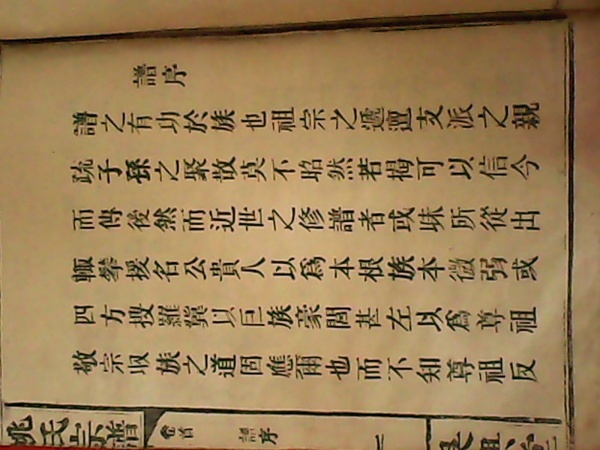 譜序
譜之有功於族也祖宗之遞邅支派之親
疏子孫之聚散莫不昭然若揭可以信今
而傳後然而近世之修譜者或昧所從出
輒攀援名公貴人以爲本根族本微弱或
四方搜羅冀以巨族豪閭甚左以爲尊祖
敬宗収族之道固應爾也而不知尊祖反
姚氏宗譜
卷首
譜序
一